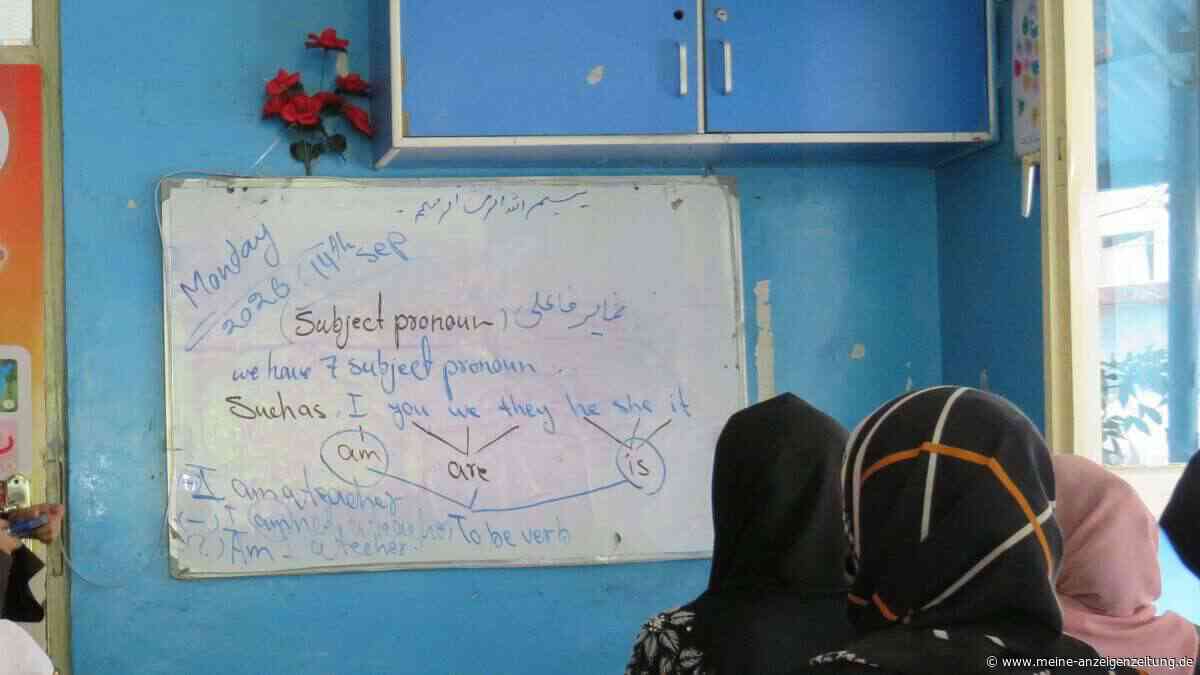 بسم الله الرحمن الرحیم
Monday
2026. 14th sep
(Subject pronoun) ضمایر فاعلی
we have 7 subject pronoun.
Such as. I you we they he she it
am are is
I am a teacher
(-) I am
To be verb
(?) Am - a teecher.
© www.meine-anzeigenzeitung.de